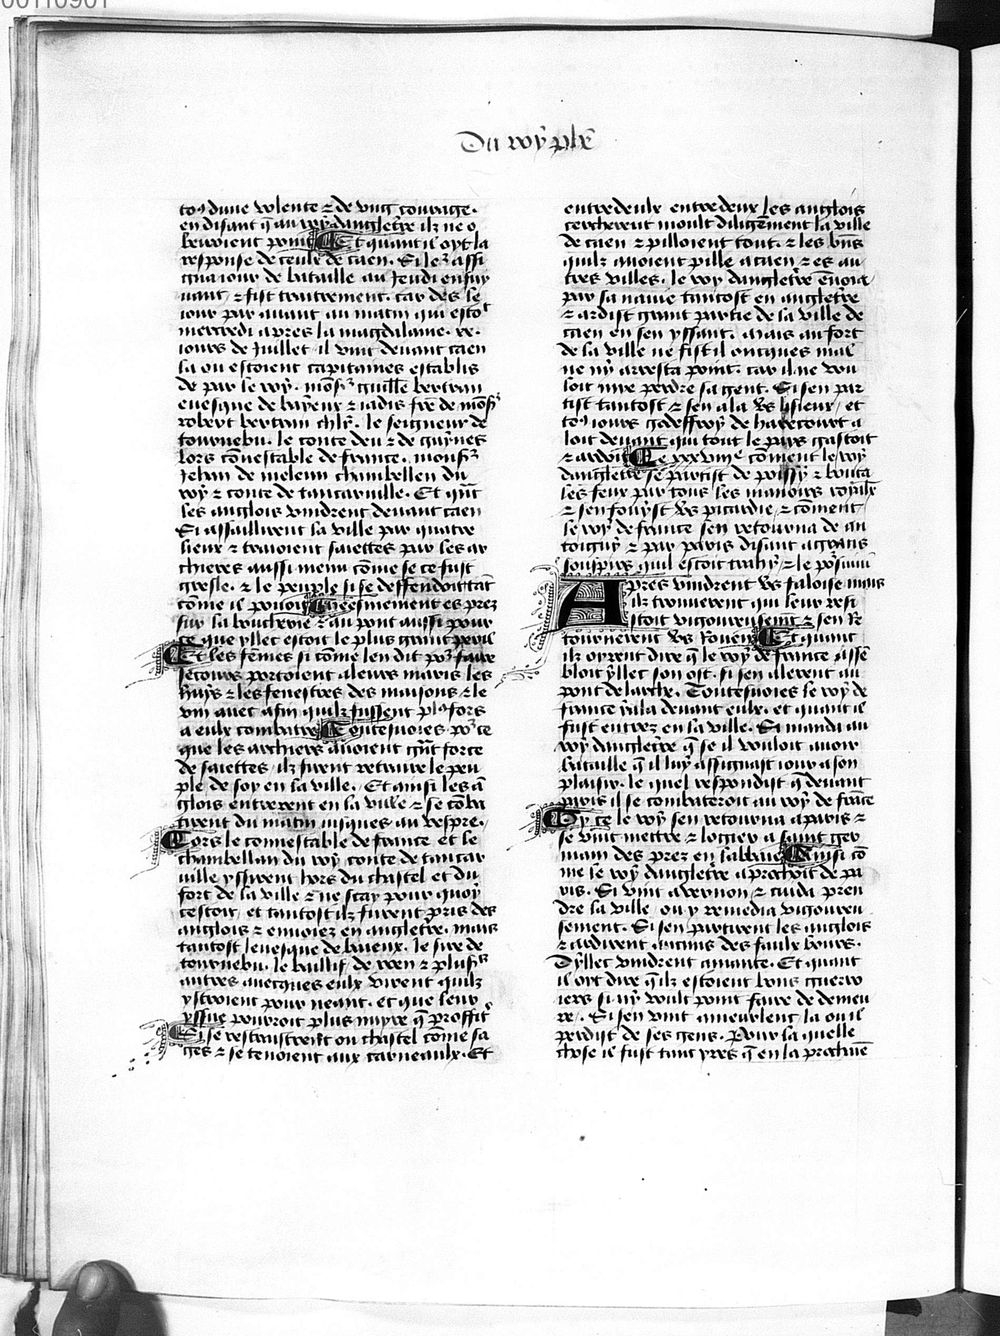 00110901
Du roy phe
toꝰ dune volente ⁊ de vng courage.
en disant q̃ au roy dangletr̃e ilz ne o
beiroient point Et quant il oyt la
response de ceulx de caen. Si lez assi
gna iour de bataille au Jeudi ensuy
uant, ⁊ fist traitrement. car des le
iour par auant au matin qui estoit
mercredi apres la magdalaine. xx.
iours de Juillet il vint deuant caen
la ou estoient capitaines establis
de par le roy. monsr guille bertran
euesque de bayeux ⁊ iadis fre de monsr
robert bertran chlr. le seigneur de
tournebu. le conte deu ⁊ de guynes
lors cõnestable de france. monsr
Jehan de meleun chambellen du
roy ⁊ conte de tancaruille. Et qñt
les anglois vindrent deuant caen
Si assaillirent la ville par quatre
lieux ⁊ traioient saiettes par les ar
chieres aussi menu cõme se ce fust
gresle. ⁊ le peuple si se deffendoit tãt
cõme il pouoit Mesmement es prez
sur la boucherie ⁊ au pont aussi pour
ce que yllec estoit le plus grant peril
Et les fẽmes si cõme len dit por faire
secours portoient a leurs maris les
huys ⁊ les fenestres des maisons ⁊ le
vin auec afin quilz fussent plꝰ fors
a eulx combatre Toutesuoies por ce
que les archiers auoient grãt force
de saiettes, ilz firent retraire le peu
ple de soy en la ville. Et ainsi les ã
glois entrerent en la ville ⁊ se cõba
tirent du matin iusques au vespre.
Lors le connestable de france et le
chambellan du roy conte de tancar
uille yssirent hors du chastel et du
fort de la ville ⁊ ne scay pour quoy
cestoit, et tantost ilz furent pris des
anglois ⁊ enuoiez en angletr̃e. mais
tantost leuesque de baieux. le sire de
tournebu. le baillif de roen ⁊ plusrs
autres auecques eulx virent quilz
ystroient pour neant. et que leur
yssue pourroit plus nuyre q̃ proffit
Si se restraistrent ou chastel cõme sa
ges ⁊ se tenoient aux carneaulx. Et
entredeulx entredeux les anglois
cercherent moult diligẽment la ville
de caen ⁊ pilloient tout. ⁊ les biẽs
quilz auoient pille a caen ⁊ es au
tres villes. le roy dangletr̃e ẽuoia
par sa nauie tantost en angletr̃e
⁊ ardist grant partie de la ville de
caen en sen yssant. Mais au fort
de la ville ne fist il oncques mal
ne ny arresta point. car il ne vou
loit mye perdre sa gent. Si sen par
tist tantost ⁊ sen ala vs lisieux, et
toꝰ iours godeffroy de harecourt a
loit deuant qui tout le pays gastoit
⁊ ardoit Le xxxviiie cõment le roy
dangletr̃e se partist de poissy ⁊ bouta
les feux par tous les manoirs royaulx
⁊ sen fouyst vs picardie, ⁊ cõment
le roy de france sen retourna de an
toigny ⁊ par paris disant a grans
souspirs quil estoit trahy. ⁊ le poursui
Apres vindrent vs faloise mais
ilz trouuerent qui leur resi
stoit vigoureusemẽt ⁊ sen re
tournerent vs Rouen Et quant
ilz oyrent dire q̃ le roy de france assẽ
bloit yllec son ost. si sen alerent au
pont de larche. Toutesuoies le roy de
france y ala deuant eulx. et quant il
fust entrez en la ville. Si manda au
roy dangletr̃e q̃ se il vouloit auoir
bataille q̃ il luy assignast iour a son
plaisir. le quel respondist q̃ deuant
paris il se combateroit au roy de frãce
Oy ce le roy sen retourna a paris ⁊
se vint mettre ⁊ logier a saint ger
main des prez en labbaie Ainsi cõ
me le roy dangletr̃e aprochoit de pa
ris. Si vint a vernon ⁊ cuida pren
dre la ville, ou y remedia vigoureu
sement. Si sen partirent les anglois
⁊ ardirent aucuns des faulx bours.
Dyllec vindrent a mante. Et quant
il oyt dire q̃ ilz estoient bons guerr
iers si ny voult point faire de demeu
re. Si sen vint a meurlent la ou il
perdist de ses gens. Pour la quelle
chose il fust tant yres q̃ en la prochaiẽ